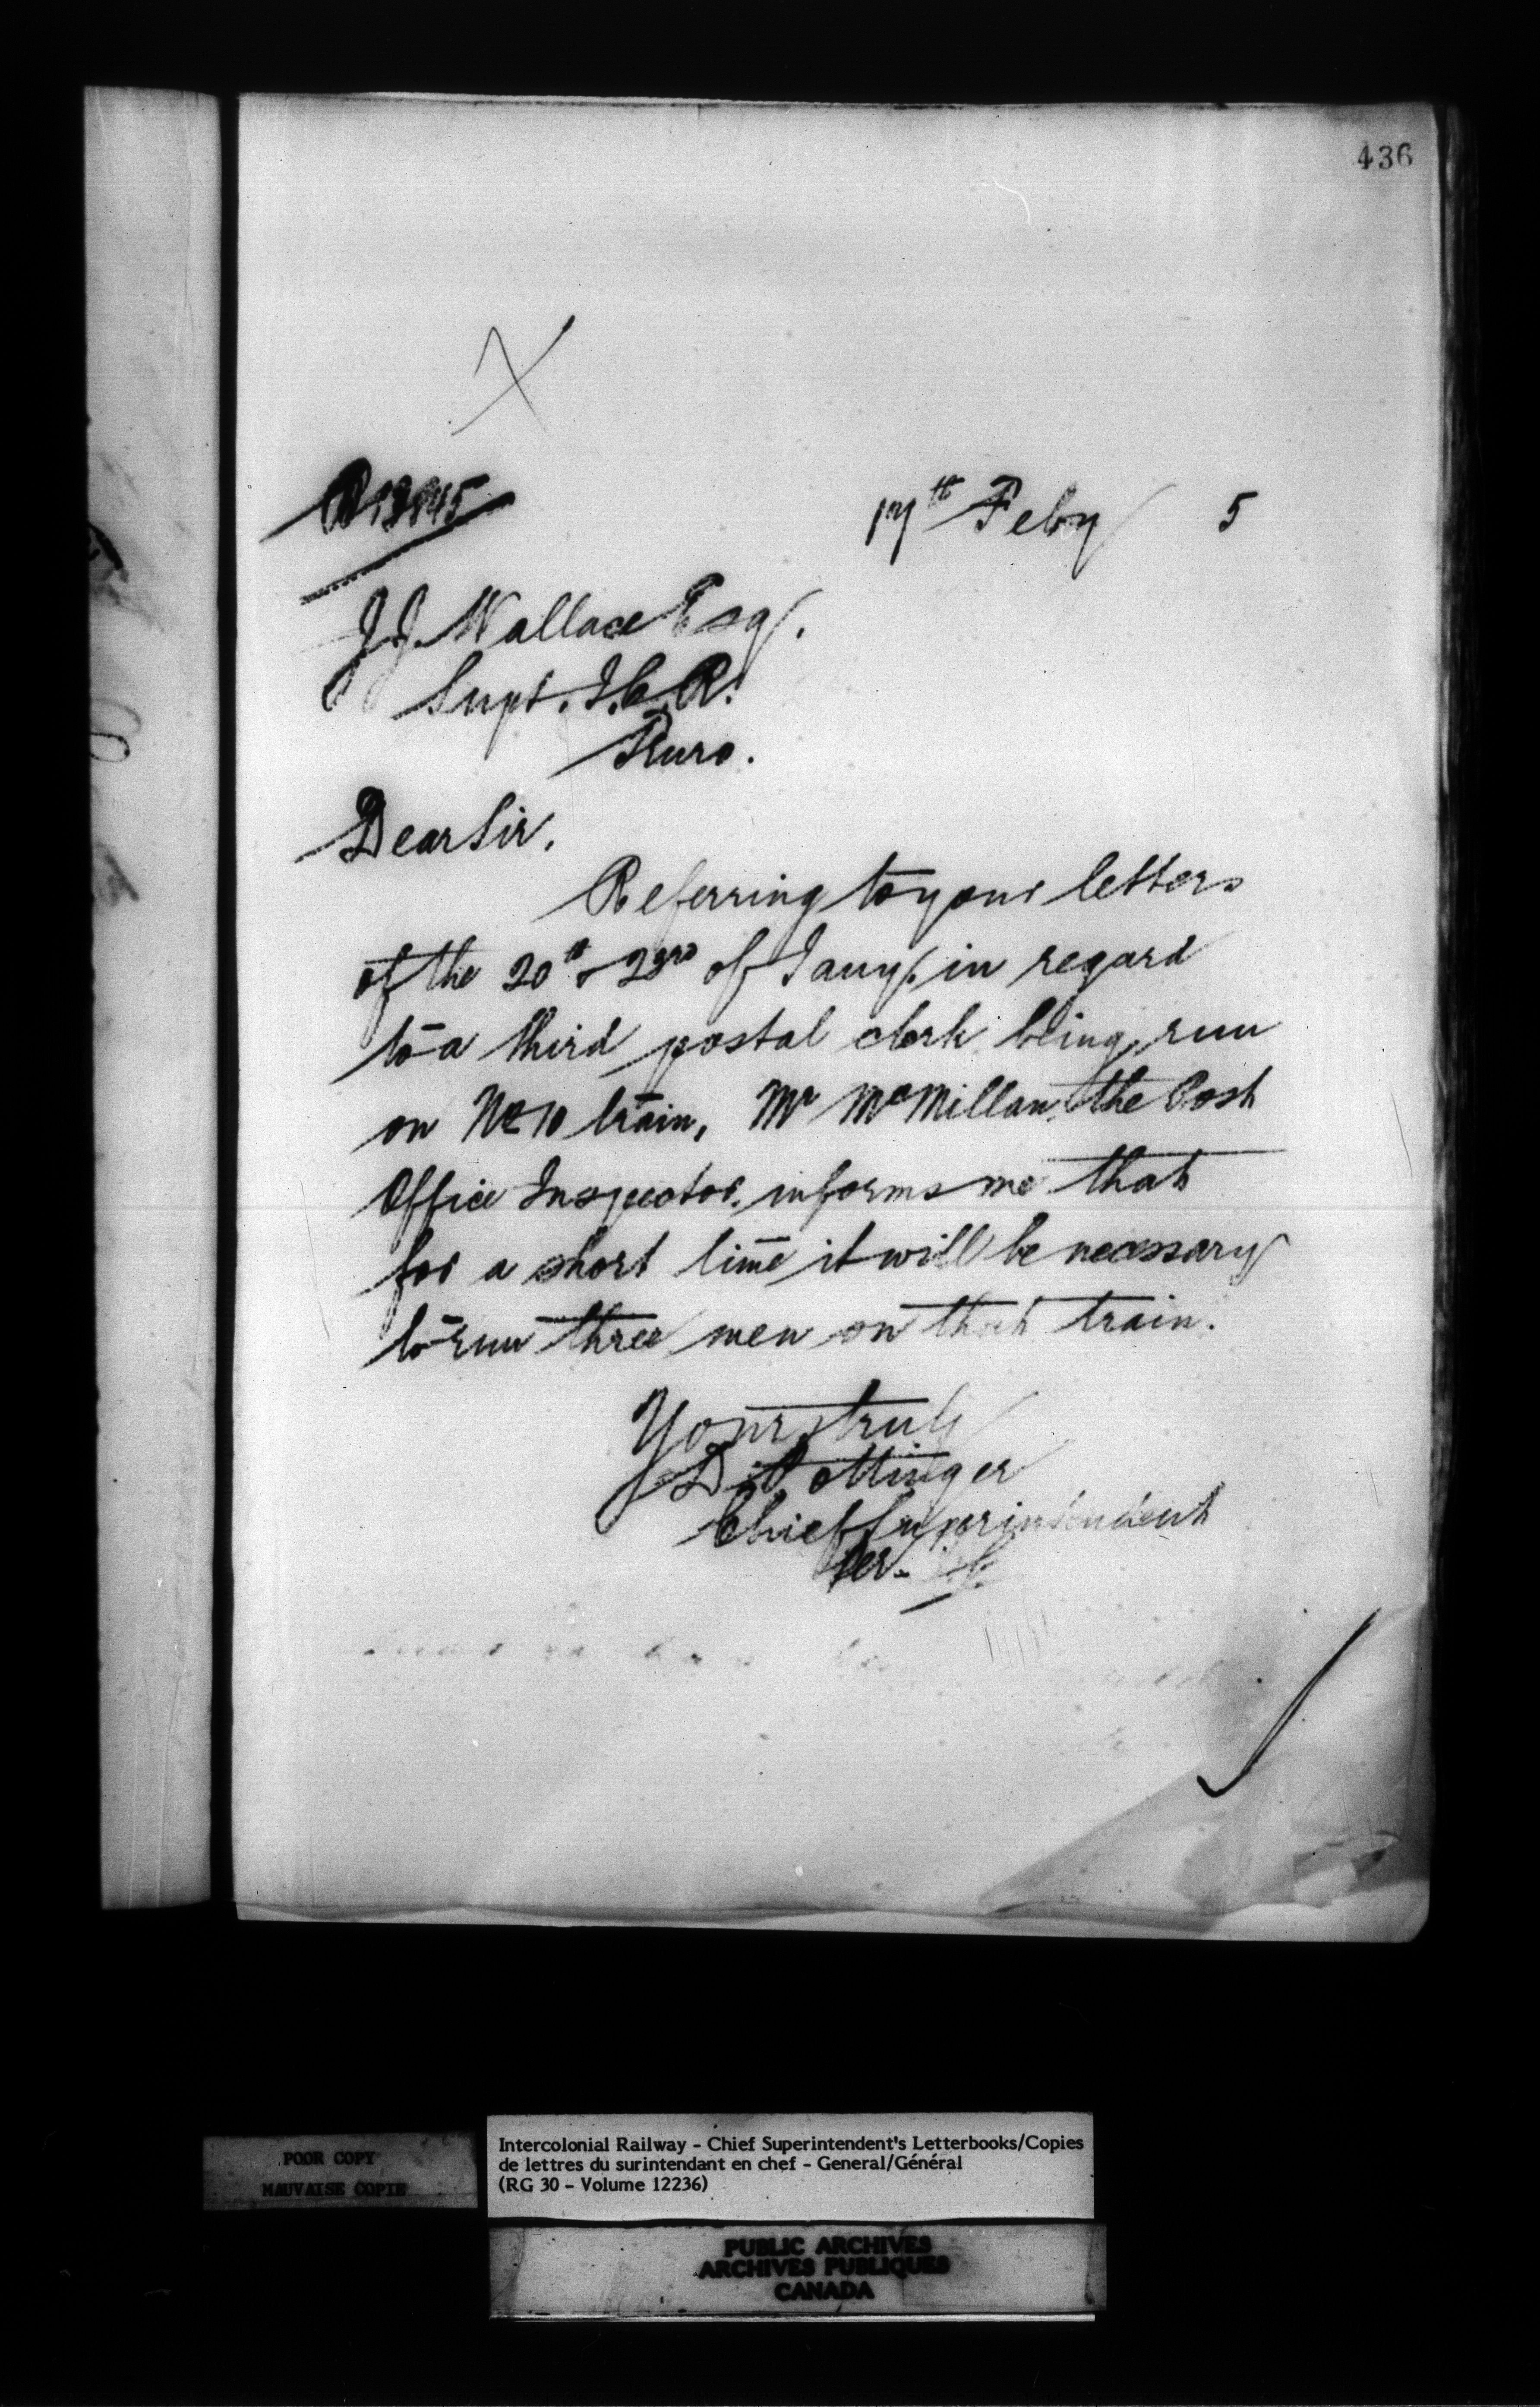 436
17th Feby 5
J.J. Wallace Esq.
Supt. I.C.R.
Truro.
Dear Sir,
Referring to your letters
of the 20th & 23rd of Jany. in regard
to a third postal clerk being run
on No 10 train, Mr McMillan, the Post
Office Inspector, informs me that
for a short time it will be necessary
to run three men on that train.
Yours truly
D. Pottinger
Chief Superintendent
Per.
POOR COPY
MAUVAISE COPIE
Intercolonial Railway - Chief Superintendent's Letterbooks/Copies
de lettres du surintendant en chef - General/Général
(RG 30 - Volume 12236)
PUBLIC ARCHIVES
ARCHIVES PUBLIQUES
CANADA